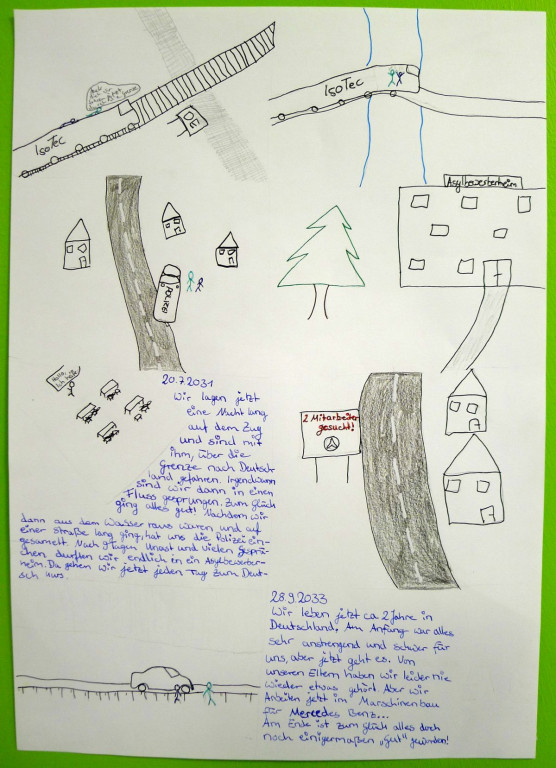 IsoTec
DE
IsoTec
Asylbewerberheim
POLIZEI
Hallo,
Ich
20.7.2031
Wir lagen jetzt
eine Nacht lang
auf dem Zug
und sind mit
ihm, über die
Grenze nach Deutsch
land gefahren. Irgendwann
sind wir dann in einen
Fluss gesprungen. Zum glück
ging alles gut! Nachdem wir
dann aus dem Wasser raus waren und auf
einer Straße lang ging, hat uns die Polizei ein-
gesamelt. Nach 9 Tagen Knast und vielen gesprä-
chen durften wir endlich in ein Asylbewerber-
heim. Da gehen wir jetzt jeden Tag zum Deut-
sch kurs.
2 Mitarbeiter
gesucht!
28.9.2033
Wir leben jetzt ca 2 Jahre in
Deutschland. Am Anfang war alles
sehr anstrengend und schwer für
uns, aber jetzt geht es. Von
unseren Eltern haben wir leider nie
wieder etwas gehört. Aber wir
Arbeiten jetzt im Marschinenbau
für Mercedes Benz...
Am Ende ist zum Glück alles doch
noch einigermaßen „gut" geworden!